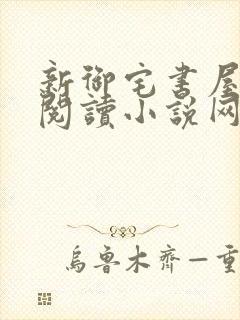 新御宅書屋
閱讀小說网
烏魯木齊一重